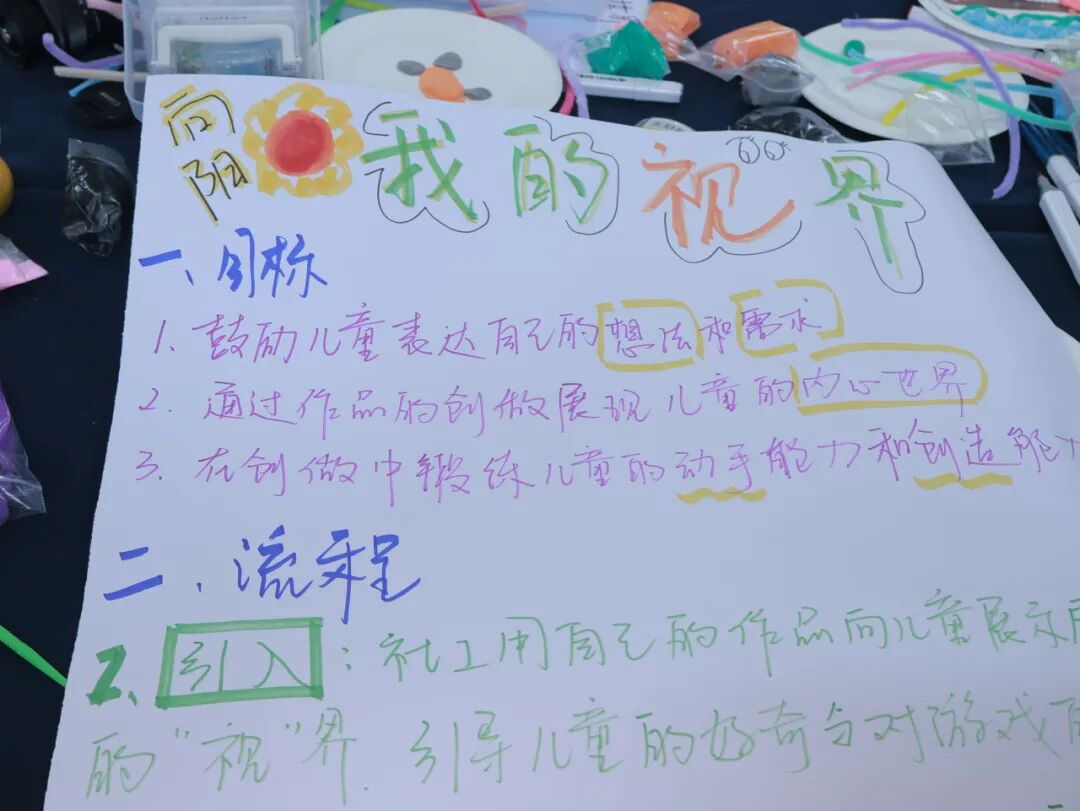 向阳
我的视界
一、目标
1、鼓励儿童表达自己的想法和需求
2. 通过作品的创做展现儿童的内心世界
3. 在创做中锻练儿童的动手能力和创造能
二、流程
2、引入：社工用自己的作品向儿童展示
的“视”界. 引导儿童的好奇与对游戏